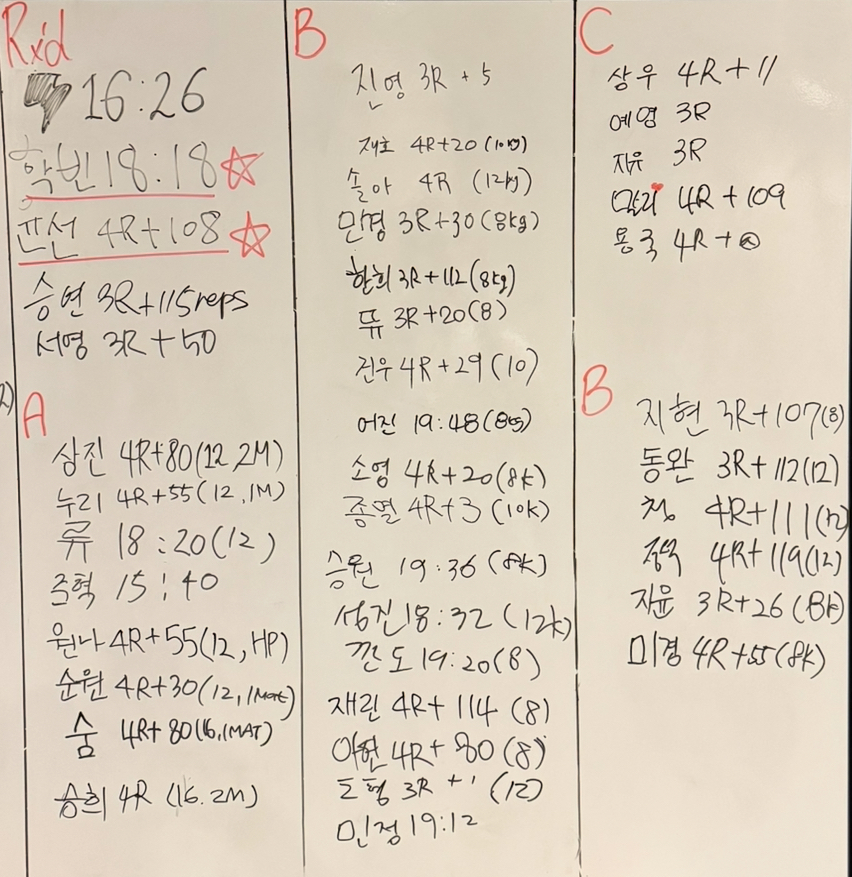 Rx'd
16:26
학빈 18:18
윤선 4R+108
승연 3R+115reps
서영 3R+50
A
삼진 4R+80(12 2M)
누리 4R+55(12, 1M)
류 18:20(12)
준혁 15:40
원나 4R+55(12, HP)
순원 4R+30(12, 1Mat)
숨 4R+80(16, 1MAT)
승희 4R (16. 2M)
B
진영 3R + 5
재호 4R+20(10kg)
솔아 4R (12kg)
민경 3R+30(8kg)
환희 3R+112(8kg)
뜌 3R+20(8)
진우 4R+29(10)
어진 19:48(8kg)
소영 4R+20(8k)
종열 4R+3(10k)
승원 19:36(8k)
성진 18:32(12k)
깐도 19:20(8)
재린 4R+114(8)
아현 4R+80(8)
도형 3R +1(12)
민정 19:12
C
상우 4R+11
예영 3R
지유 3R
4R+109
용국 4R+
B
지현 3R+107(8)
동완 3R+112(12)
청 4R+111(12)
4R+119(12)
지윤 3R+26(8k)
미경 4R+55(8k)